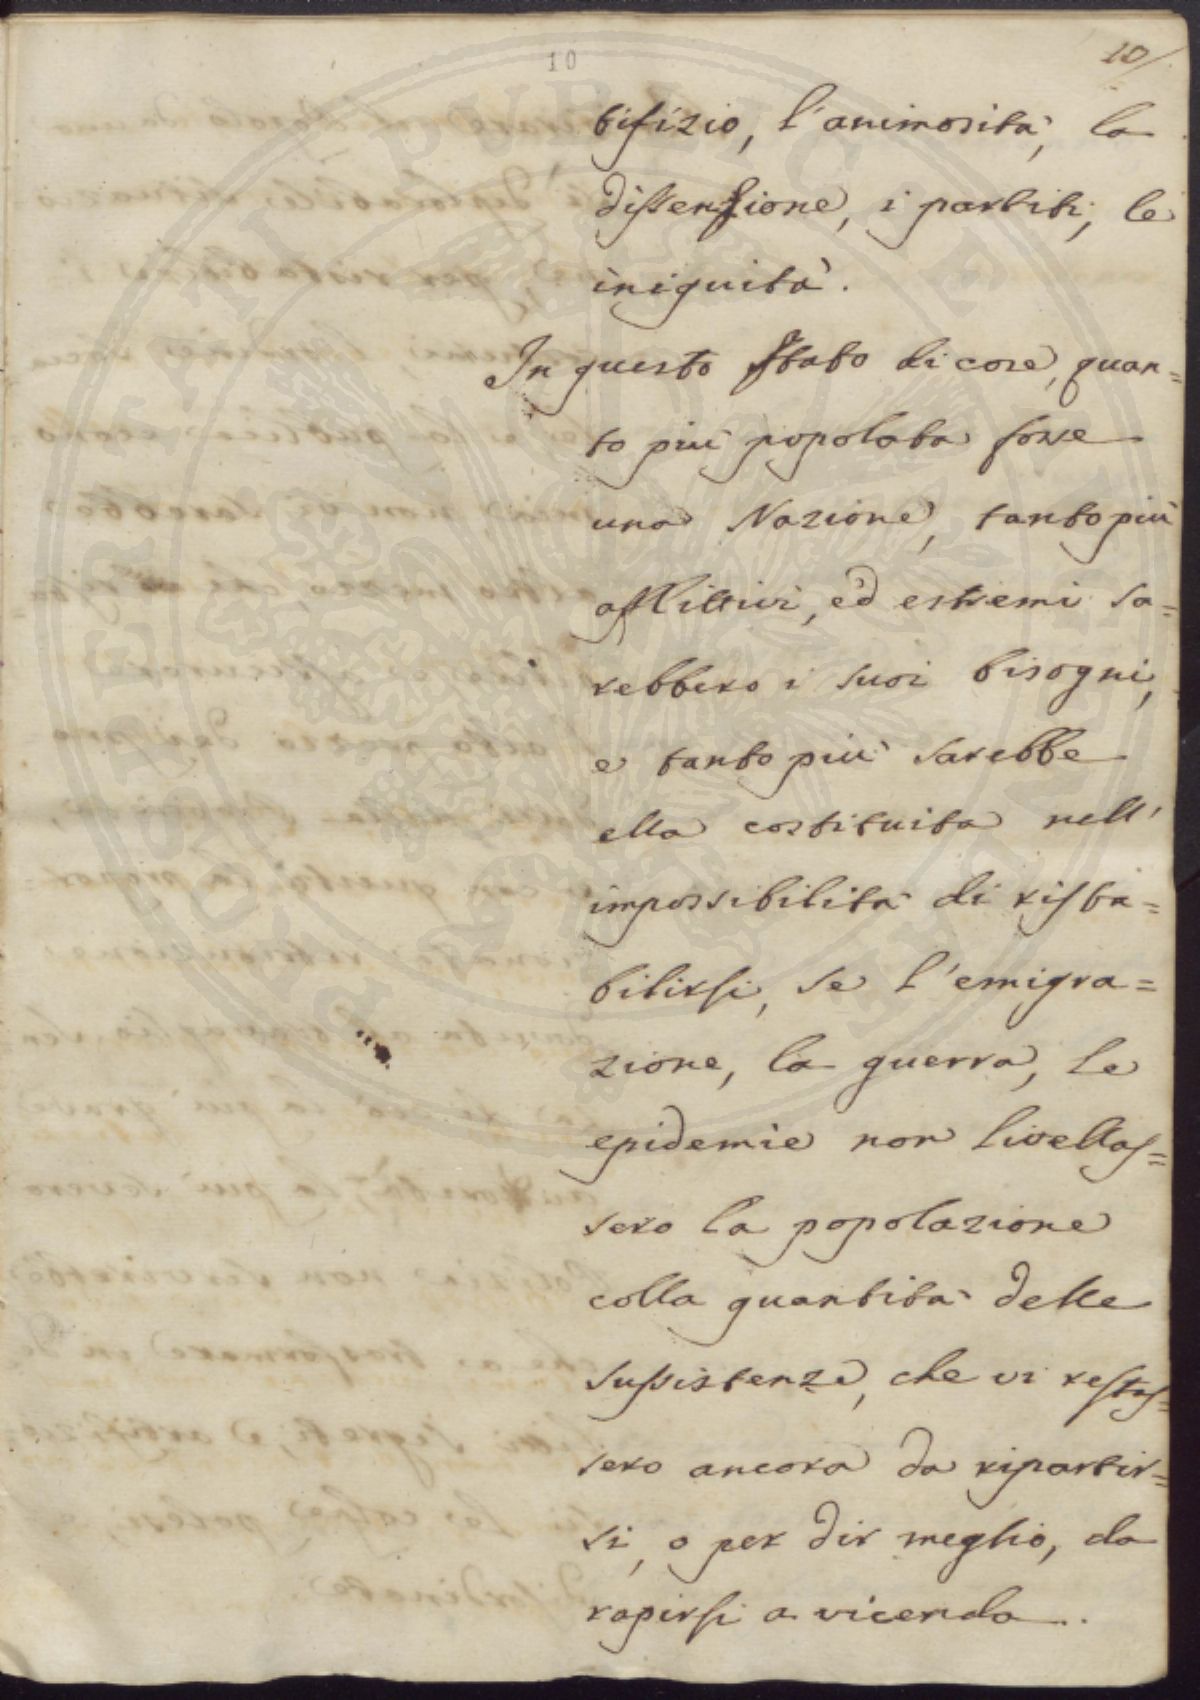 10
10/
tifizio, l'animosità, la
dissensione, i partiti, le
iniquità.
In questo stato di cose, quan=
to più popolata fosse
una Nazione, tanto più
afflittivi, ed estremi sa=
rebbero i suoi bisogni,
e tanto più sarebbe
ella costituita nell'
impossibilità di rista=
bilirsi, se l'emigra=
zione, la guerra, le
epidemie non livellas=
sero la popolazione
colla quantità delle
sussistenze, che vi restas=
sero ancora da ripartir=
si, o per dir meglio, da
rapirsi a vicenda.